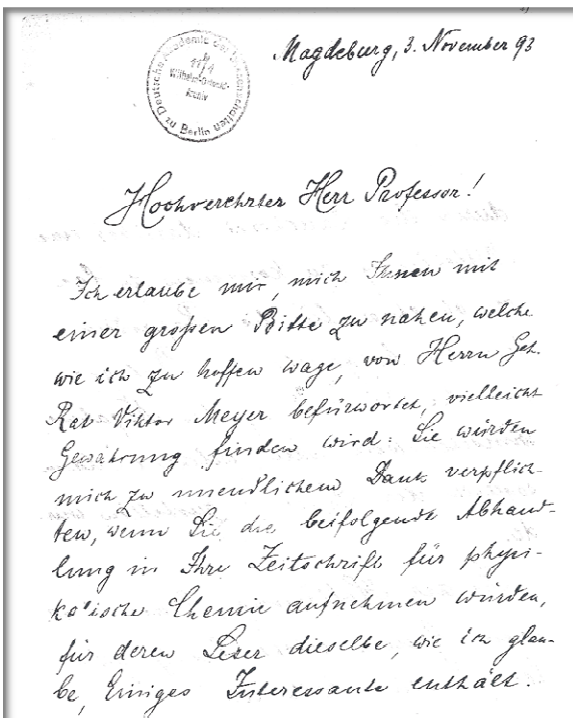 Deutsche Akademie der Wissenschaften zu Berlin
Wilhelm-Ostwald-
Archiv
Magdeburg, 3. November 93
Hochverehrter Herr Professor!
Ich erlaube mir, mich Ihnen mit
einer großen Bitte zu nahen, welche
wie ich zu hoffen wage, von Herrn Geh.
Rat Viktor Meyer befürwortet, vielleicht
Gewährung finden wird: Sie würden
mich zu unendlichem Dank verpflich-
ten, wenn Sie die beifolgende Abhand-
lung in Ihre Zeitschrift für physi-
kalische Chemie aufnehmen würden,
für deren Leser dieselbe, wie ich glau-
be, Einiges Interessante enthält.